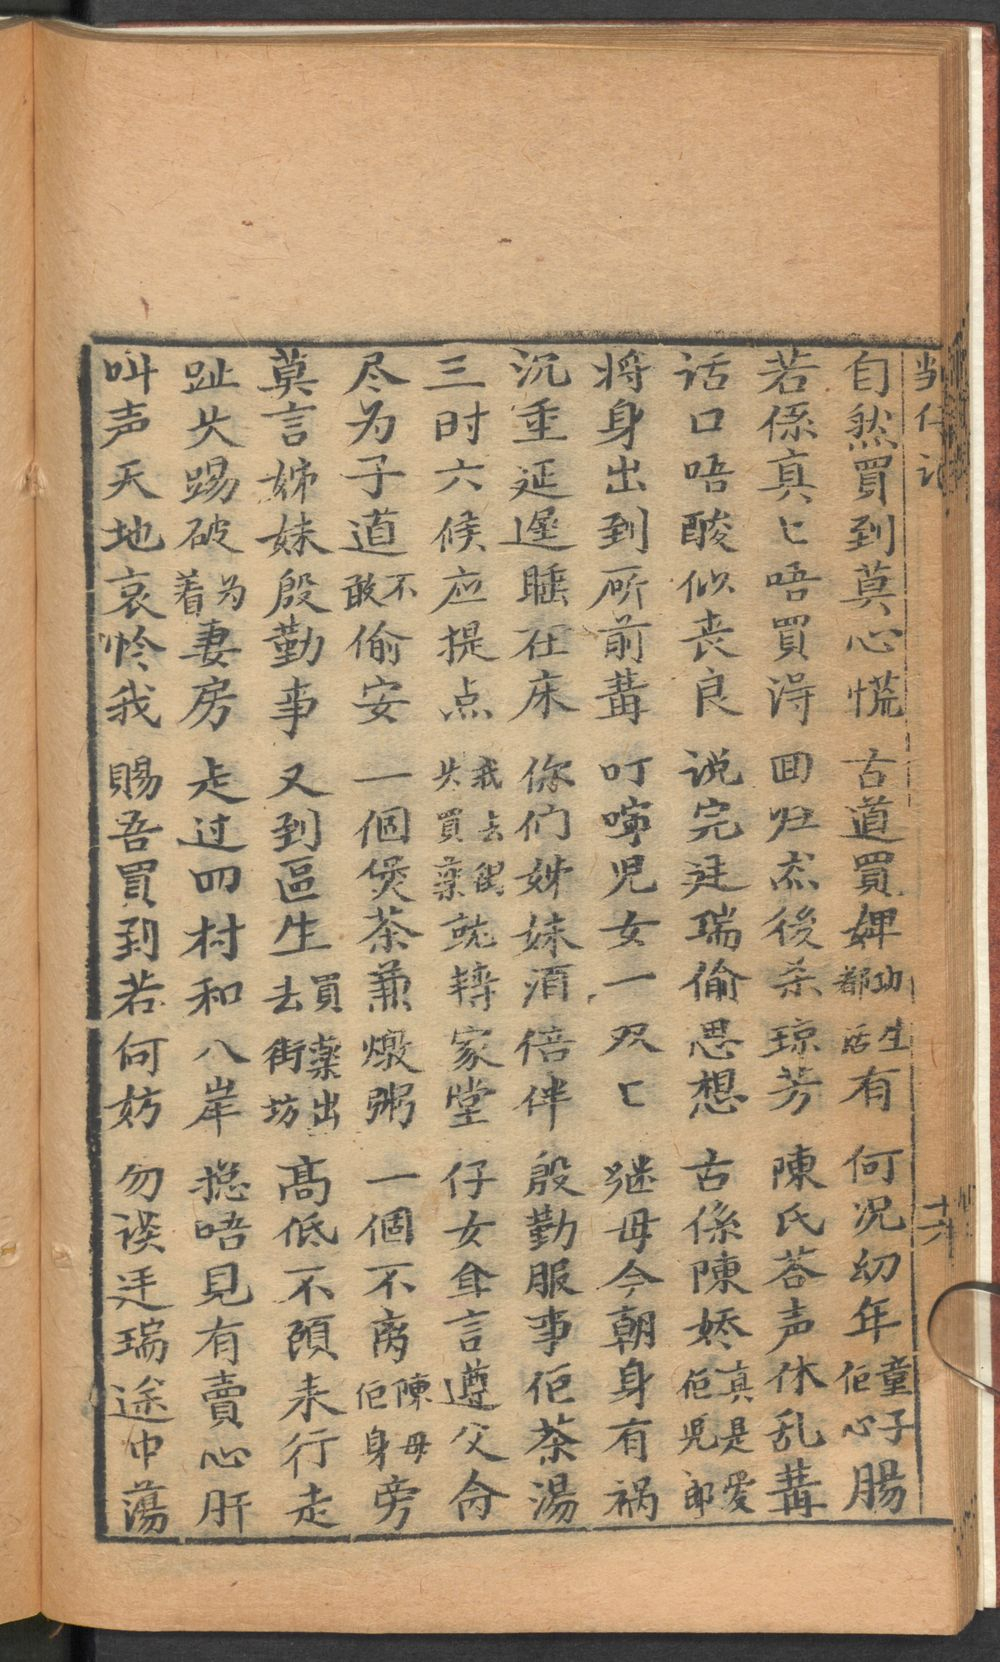 自然買到莫心慌　古道買婢幼都生活有　何況幼年童子佢心腸
若係真匕唔買得　回归然後杀琼芳　陳氏荅声休乱講
话口唔酸似丧良　说完廷瑞偷思想　古係陳娇真是爱佢児郎
将身出到所前講　叮嚀児女一双匕　继母今朝身有祸
沉重延遲睡在床　你们姊妹須倍伴　殷勤服事佢茶湯
三时六候应提点　我去街头買藥就轉家堂　仔女耸言遵父命
尽为子道不敢偷安　一個煲茶兼燉粥　一個不离陳母佢身旁
莫言姊妹殷勤事　又到區生買藥出去街坊　高低不顾来行走
趾头踢破为着妻房　走过四村和八岸　捴唔見有賣心肝
叫声天地哀怜我　賜吾買到若何妨　勿误廷瑞途中蕩
十六